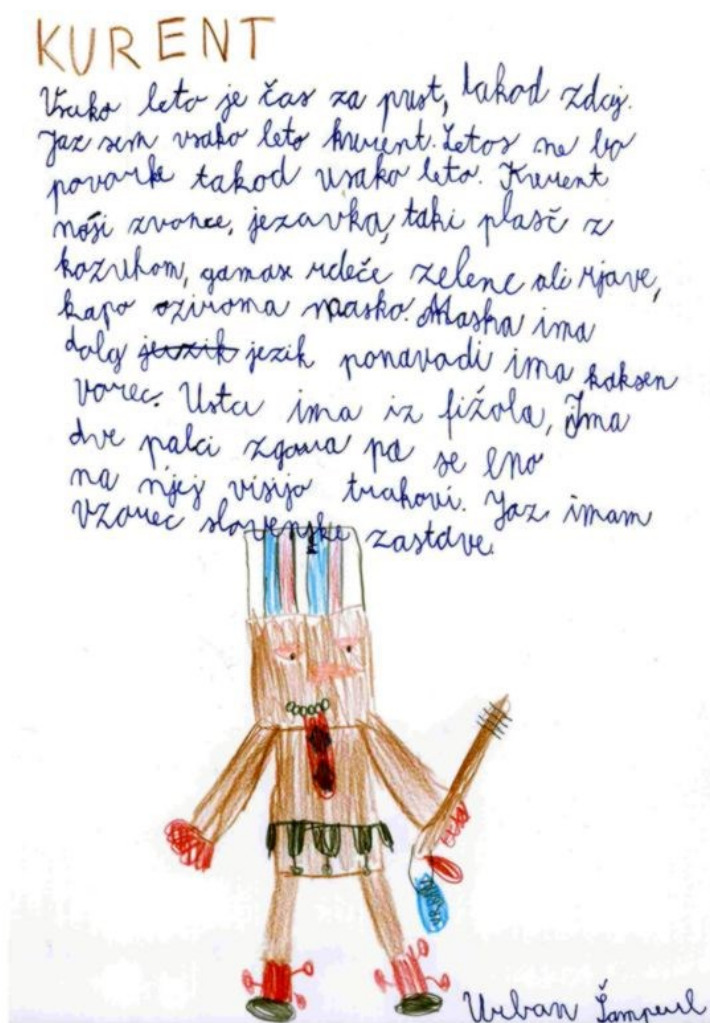 KURENT
Vsako leto je čas za pust, takod zdaj.
Jaz sem vsako leto kurent. Letos ne bo
povorke takod vsako leto. Kurent
nosi zvonce, jezavka, taki plašč z
kozuhom, gamaše rdeče zelene ali rjave,
kapo oziroma masko. Maska ima
dolg jezik ponavadi ima kaksen
vorec. Usta ima iz fižola, Ima
dve palci zgoraj pa se eno
na njej visijo trakovi. Jaz imam
vzorec slovenske zastave.
Urban